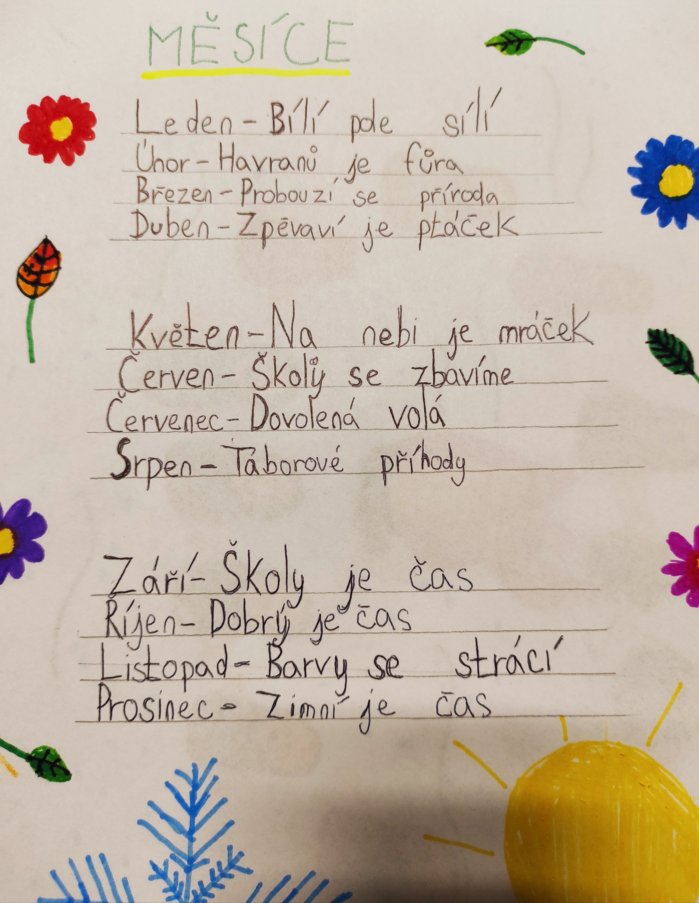 MĚSÍCE
Leden - Bílí pole sílí
Únor - Havranů je fůra
Březen - Probouzí se příroda
Duben - Zpěvaví je ptáček
Květen - Na nebi je mráček
Červen - Školy se zbavíme
Červenec - Dovolená volá
Srpen - Táborové příhody
Září - Školy je čas
Říjen - Dobrý je čas
Listopad - Barvy se strácí
Prosinec - Zimní je čas